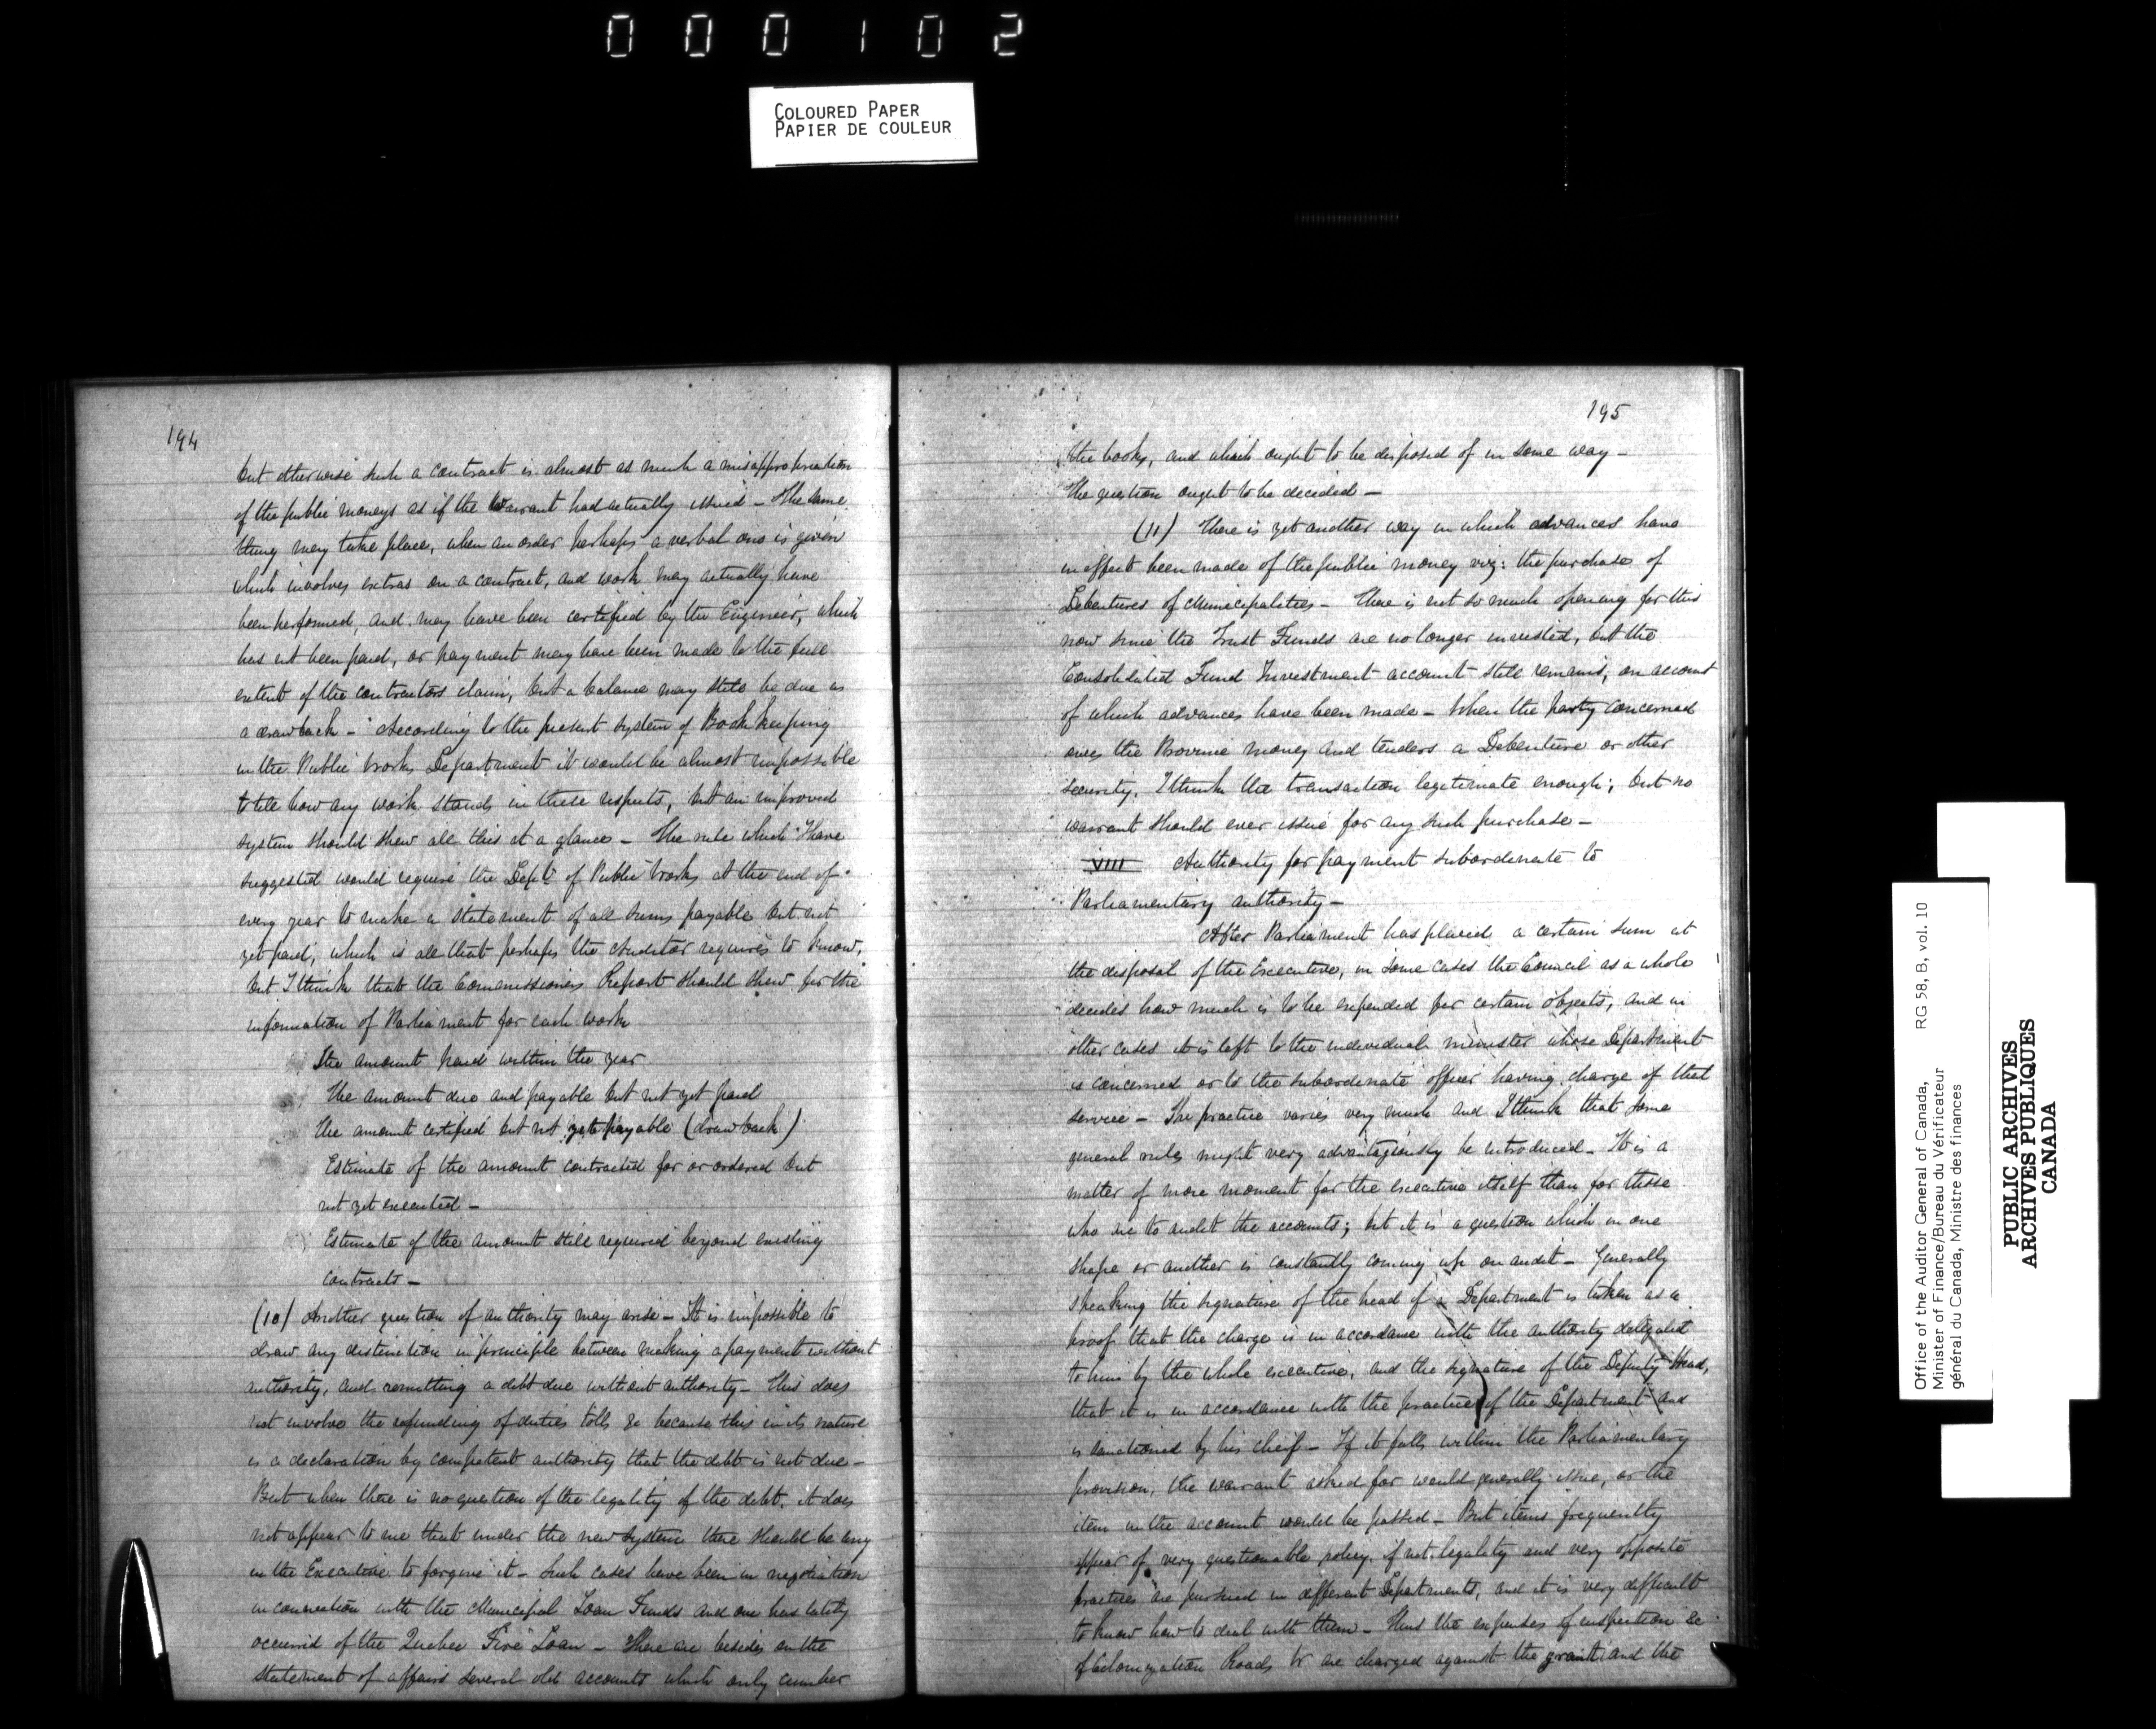 000102
COLOURED PAPER
PAPIER DE COULEUR
194
but otherwise such a contract is almost as much a misappropriation
of the public moneys as if the Warrant had actually issued – The same
thing may take place, when an order perhaps a verbal one is given
which involves extras on a contract, and work may actually have
been performed, and may have been certified by the Engineer, which
has not been paid, or payment may have been made to the full
extent of the contractors claim, but a balance may still be due as
a drawback – According to the present system of Bookkeeping
in the Public Works Department it would be almost impossible
to tell how any work stands in these respects, but an improved
system should shew all this at a glance – The rule which I have
suggested would require the Dept of Public Works at the end of
every year to make a statement of all sums payable but not
yet paid, which is all that perhaps the Auditor requires to know,
but I think that the Commissioners Report should shew for the
information of Parliament for each work
The amount paid within the year
The amount due and payable but not yet paid
The amount certified but not yet payable (drawback)
Estimate of the amount contracted for or ordered but
not yet executed –
Estimate of the amount still required beyond existing
contracts –
(10) Another question of authority may arise – It is impossible to
draw any distinction in principle between making a payment without
authority, and remitting a debt due without authority – This does
not involve the refunding of duties tolls &c because this in its nature
is a declaration by competent authority that the debt is not due –
But when there is no question of the legality of the debt, it does
not appear to me that under the new system there should be any
in the Executive to forgive it – Such cases have been in negotiation
in connection with the Municipal Loan Funds and one has lately
occurred of the Quebec Fire Loan – There are besides on the
statement of affairs several old accounts which only cumber
195
the books, and which ought to be disposed of in some way –
The question ought to be decided –
(11) There is yet another way in which advances have
in effect been made of the public money viz: the purchase of
Debentures of Municipalities – There is not so much opening for this
now since the Trust Funds are no longer invested, but the
Consolidated Fund Investment account still remains, on account
of which advances have been made – When the party concerned
owes the Province money and tenders a Debenture or other
security, I think the transaction legitimate enough; but no
warrant should ever issue for any such purchase –
VIII Authority for payment subordinate to
Parliamentary authority –
After Parliament has placed a certain sum at
the disposal of the Executive, in some cases the Council as a whole
decides how much is to be expended for certain objects, and in
other cases it is left to the individual minister whose Department
is concerned or to the subordinate officer having charge of that
service – The practice varies very much and I think that some
general rules might very advantageously be introduced – It is a
matter of more moment for the executive itself than for those
who are to audit the accounts; but it is a question which in one
shape or another is constantly coming up on audit – Generally
speaking the signature of the head of a Department is taken as a
proof that the charge is in accordance with the authority delegated
to him by the whole executive, and the signature of the Deputy Head,
that it is in accordance with the practice of the Department and
is sanctioned by his cheif – If it falls within the Parliamentary
provision, the warrant asked for would generally issue, or the
item in the account would be passed – But items frequently
appear of very questionable policy, if not legality and very opposite
practices are pursued in different Departments, and it is very difficult
to know how to deal with them – Thus the expenses of inspection &c
of Colonization Roads &c are charged against the grant and the
Office of the Auditor General of Canada, RG 58, B, vol. 10
Minister of Finance/Bureau du Vérificateur
général du Canada, Ministre des finances
PUBLIC ARCHIVES
ARCHIVES PUBLIQUES
CANADA